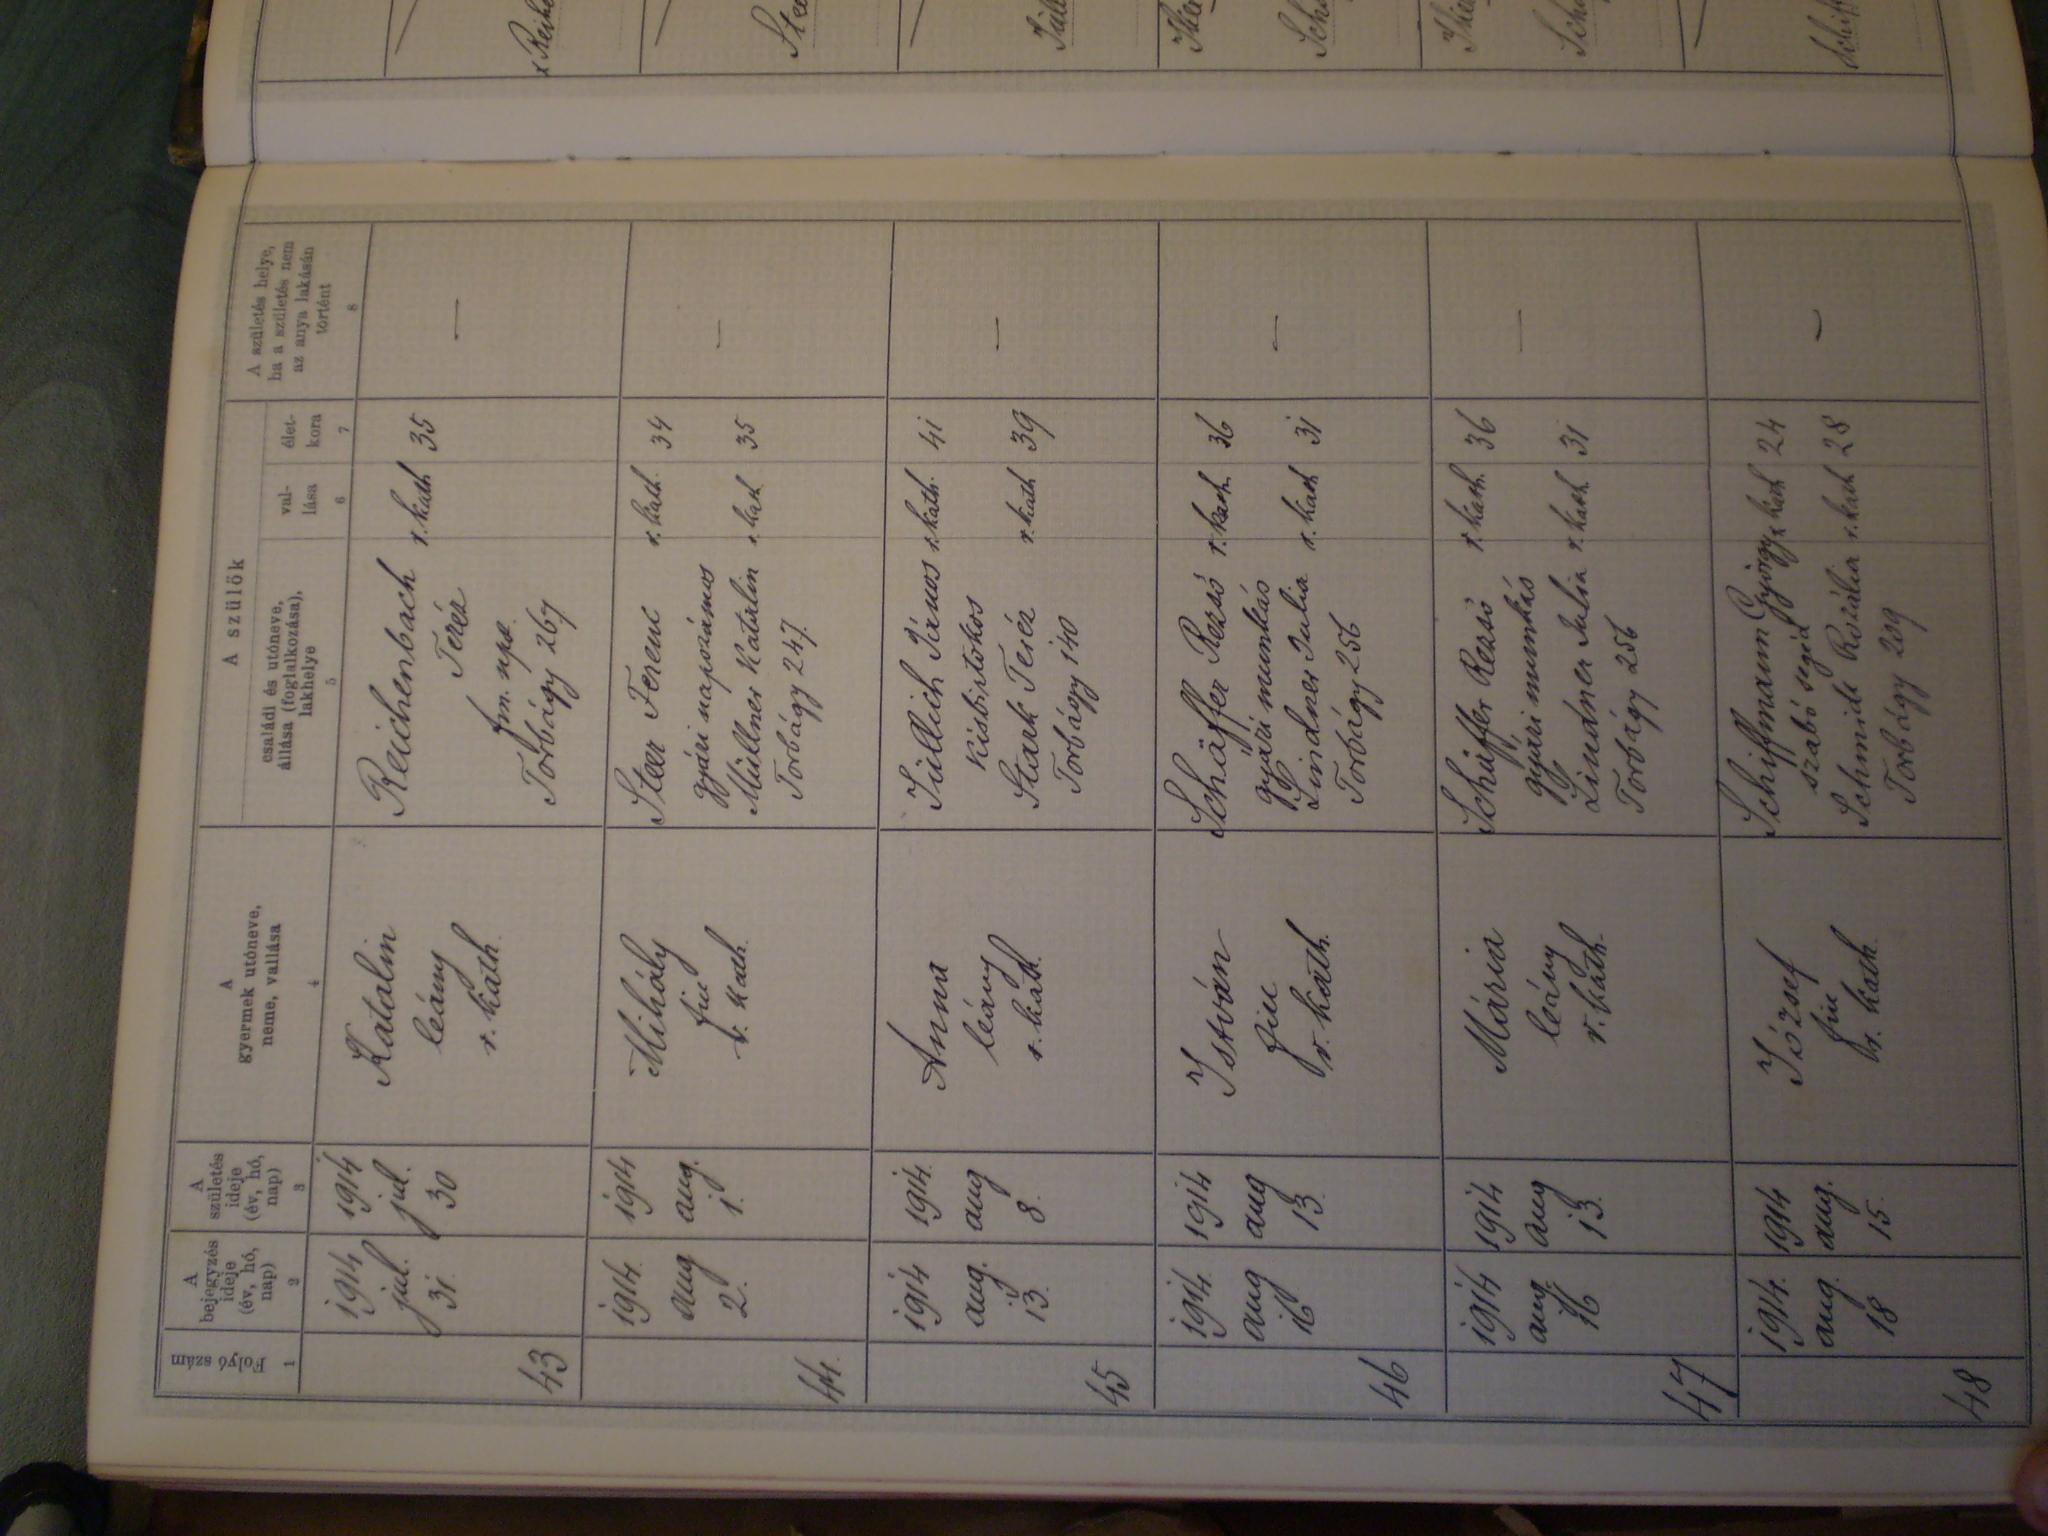 Folyó szám
1
A
bejegyzés
ideje
(év, hó,
nap)
2
A
születés
ideje
(év, hó,
nap)
3
A
gyermek utóneve,
neme, vallása
4
A szülők
családi és utóneve,
állása (foglalkozása),
lakhelye
5
val-
lása
6
élet-
kora
7
A születés helye,
ha a születés nem
az anya lakásán
történt
8
43
1914
jul.
31.
1914
jul.
30
Katalin
leány
r. kath.
Reichenbach
Teréz
fm. nps.
Torbágy 267
r. kath
35
—
44.
1914.
aug
2.
1914
aug.
1.
Mihály
fiu
r. kath.
Steer Ferenc
gyári napszámos
Müllner Katalin
Torbágy 247.
r. kath.
34
r. kath
35
—
45
1914
aug.
13.
1914.
aug
8.
Anna
leány
r. kath.
Jüllich János
kisbirtokos
Stark Teréz
Torbágy 140
r. kath.
41
r. kath
39
—
46
1914.
aug
16
1914
aug
13.
István
fiu
r. kath.
Schäffer Rezső
gyári munkás
Lindner Julia
Torbágy 256
r. kath.
36
r. kath
31
—
47
1914
aug.
16
1914
aug
13.
Mária
leány
r. kath.
Schäffer Rezső
gyári munkás
Lindner Julia
Torbágy 256
r. kath.
36
r. kath
31
—
48
1914.
aug.
18
1914
aug.
15.
József
fiu
r. kath.
Schiffmann György
szabó segéd
Schmidt Rozália
Torbágy 209
r. kath
24
r. kath
28
—